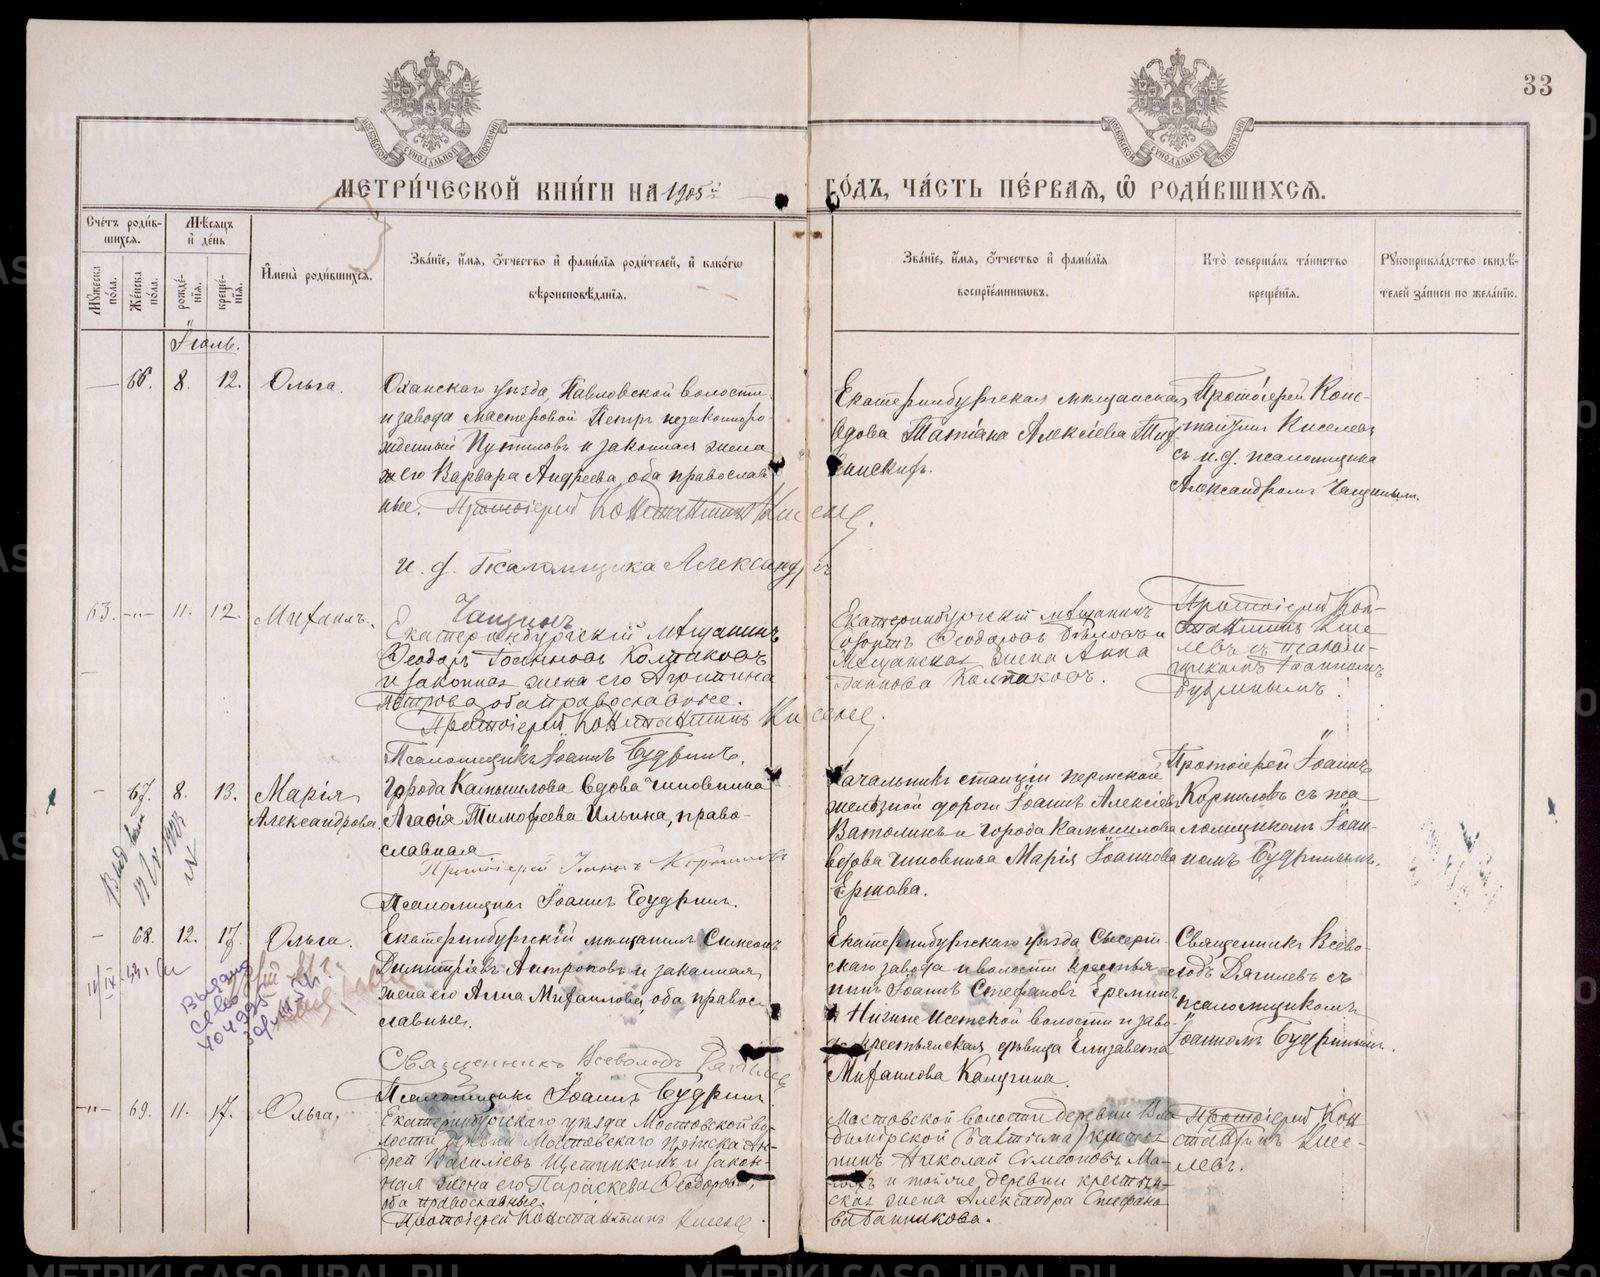 33
МЕТРИ́ЧЕСКОЙ КНИ́ГИ НА 1905й ГО́ДЪ, ЧА́СТЬ ПЕ́РВАЯ, Ѿ РОДИ́ВШИХСѦ.
Сче́тъ роди́в-
шихсѧ.
Мѣ́сѧцъ
и҆ де́нь
Мꙋ́жеска
по́ла.
Же́нска
по́ла.
рожде́-
нїѧ.
креще́-
нїѧ.
И҆мена̀ роди́вшихсѧ.
Зва́нїе, и҆́мѧ, ѻ҆́тчество и҆ фами́лїѧ роди́телей, и҆ како́гѡ
вѣроисповѣ́данїѧ.
Зва́нїе, и҆́мѧ, ѻ҆́тчество и҆ фами́лїѧ
воспрїе́мникѡвъ.
Кто̀ соверша́лъ та́инство
креще́нїѧ.
Рꙋкоприкла́дство свидѣ́-
телей за́писи по жела́нїю.
Іюль.
66. 8. 12. Ольга.
Оханскаго уѣзда, Павловской волости
и завода мастеровой Петръ незаконноро-
жденный Путиловъ и законная жена
его Варвара Андреева, оба православ
ные. Протоіерей Константинъ Киселев.
и. д. Псаломщика Александръ
Чащинъ
Екатеринбургская мѣщанская
вдова Татіана Алексіева
Протоіерей Конс-
тантинъ Киселевъ
съ и. д. псаломщика
Александромъ Чащинымъ.
63. -"- 11. 12. Михаилъ.
Екатеринбургскій мѣщанинъ
Ѳеодоръ Іоанновъ Колпаковъ
и законная жена его
Петрова, оба православные.
Протоіерей Константинъ Киселев.
Псаломщикъ Іоаннъ Будринъ.
Екатеринбургскій мѣщанинъ
Ѳеодоровъ и
Мѣщанская жена Анна
Іоаннова Колпакова.
Протоіерей Кон-
стантинъ Кисе
левъ съ псалом-
щикомъ Іоанномъ
Будринымъ.
- 67. 8. 13. Марія
Александрова.
Города Камышлова вдова чиновника
Агафія Тимофеева Ильина, право-
славная
Протоіерей Іоаннъ Корниловъ
Псаломщикъ Іоаннъ Будринъ.
Начальникъ станціи пермской
желѣзной дороги Іоаннъ Алексіевъ
Ватолинъ и города Камышлова
вдова чиновника Марія Іоаннова
Ершова.
Протоіерей Іоаннъ
Корниловъ съ пса
ломщикомъ Іоан-
номъ Будринымъ.
- 68. 12. 17. Ольга.
Екатеринбургскій мѣщанинъ Симеонъ
Димитріевъ Антроповъ и законная
жена его Анна Михаилова, оба правос
славные.
Священникъ Всеволодъ
Псаломщикъ Іоаннъ Будринъ
Екатеринбургскаго уѣзда Сысерт-
скаго завода и волости крестья
нинъ Іоаннъ Стефановъ Ереминъ
и Нижне Исетской волости и заво
крестьянская дѣвица Елизавета
Михаилова Калугина.
Священникъ Всево-
лодъ Дягилевъ съ
псаломщикомъ
Іоанномъ Будринымъ.
Выдано
-"- 69. 11. 17. Ольга.
Екатеринбургскаго уѣзда Мостовской во-
лости Мостовскаго пріиска Ан-
дрей Василіевъ Щетинкинъ и закон-
ная жена его Параскева Ѳеодорова,
оба православные.
Протоіерей Константинъ Киселев.
Мостовской волости деревни Вла
димірской крестья
нинъ Николай Симеоновъ
и той же деревни крестьян
ская жена Александра Стефано
ва Банникова.
Протоіерей Кон
стантинъ Кисе-
левъ.